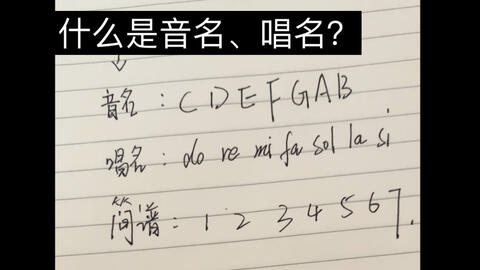 什么是音名、唱名?
音名：C D E F G A B
唱名：do re mi fa sol la si
简谱：1 2 3 4 5 6 7.